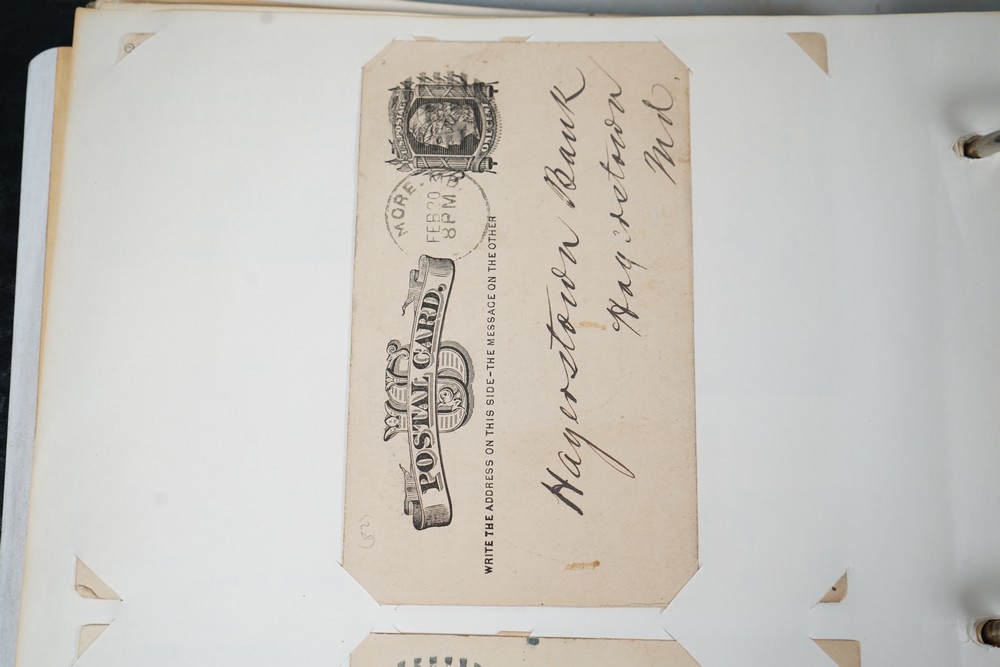 U.S. POSTAGE
ONE CENT
MORE
FEB 20
8 PM
US
POSTAL CARD.
WRITE THE ADDRESS ON THIS SIDE-THE MESSAGE ON THE OTHER
Hagerstown Bank
Hagerstown
Md.
(82)